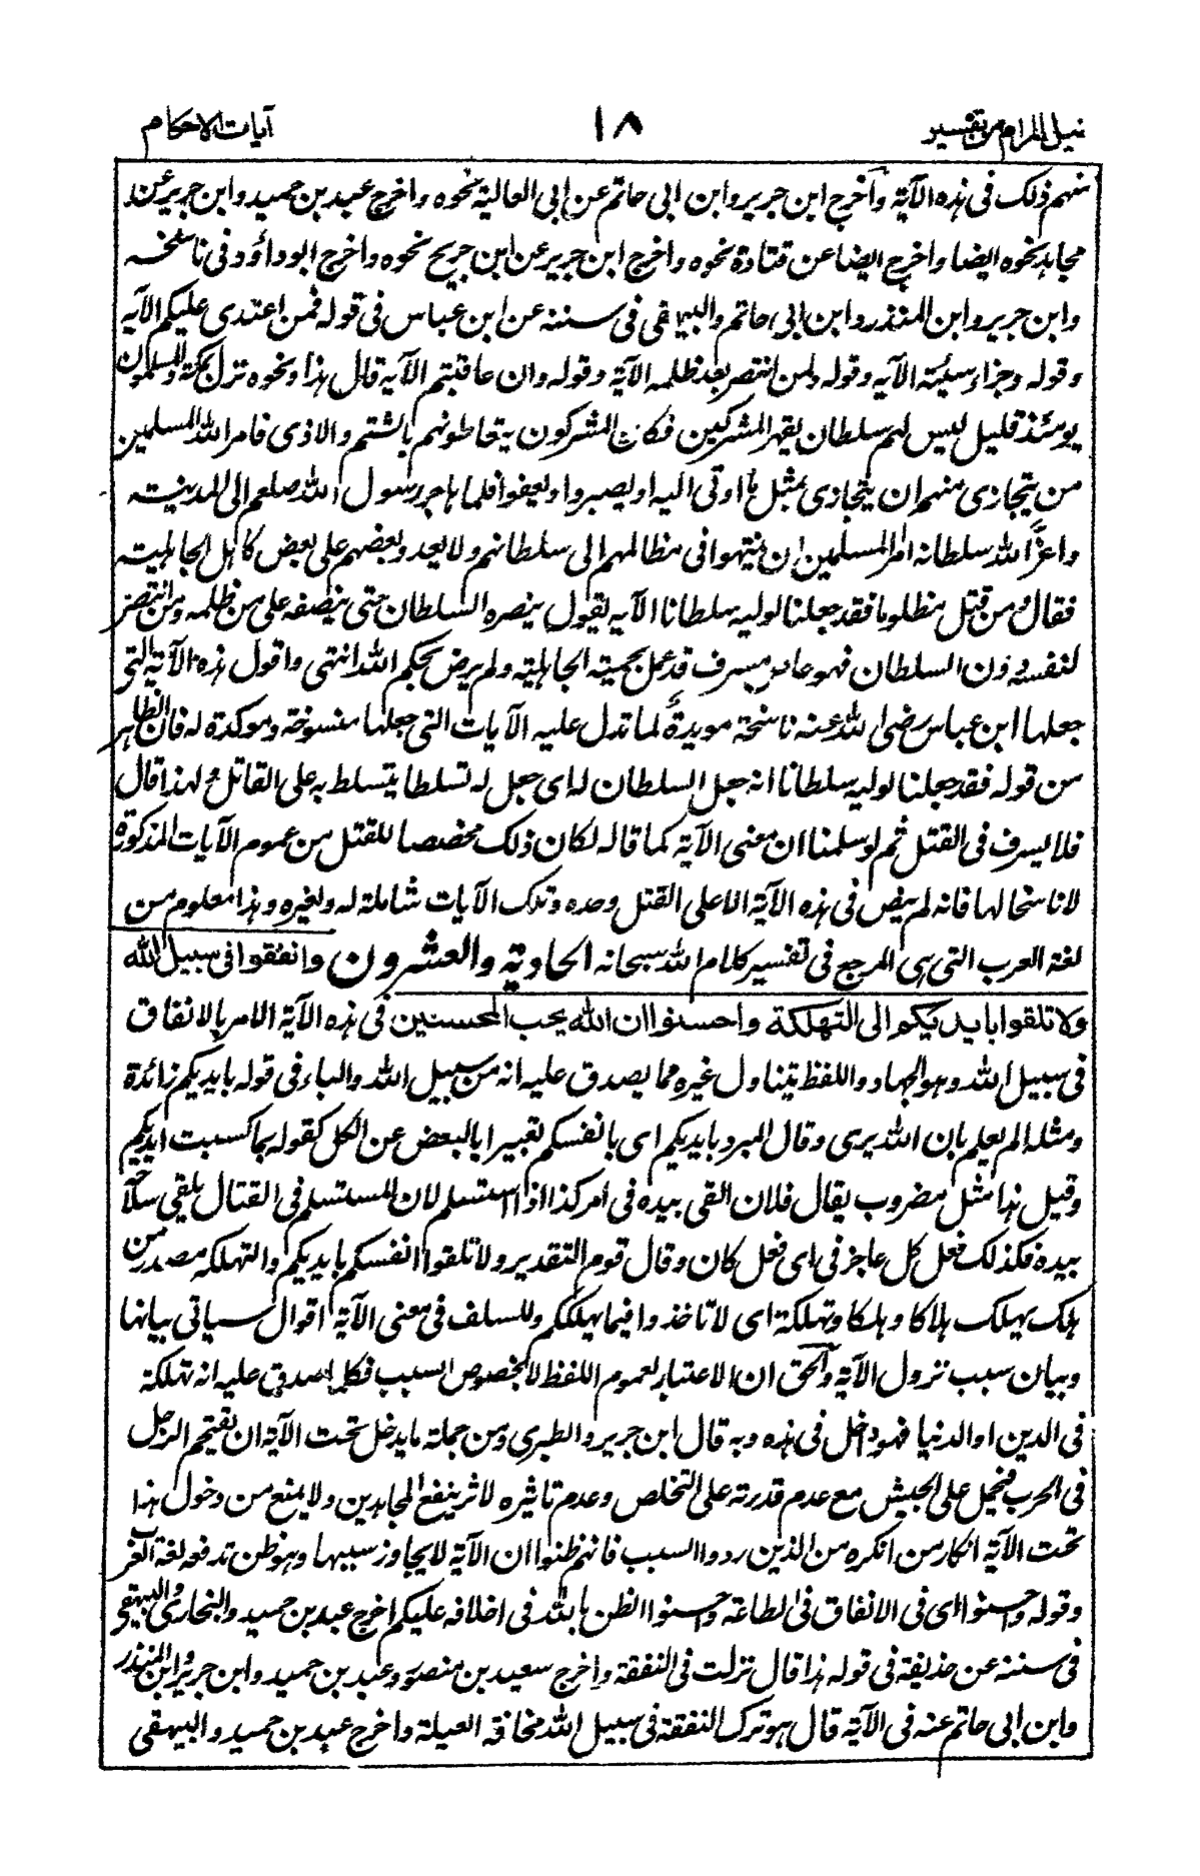 نيل المرام من تفسير
١٨
آيات الاحكام
منهم ذلك فى هذه الآية واخرج ابن جرير وابن ابى حاتم عن ابى العالية نحوه واخرج عبد بن حميد وابن جرير عن
مجاهد نحوه ايضا واخرج ايضا عن قتادة نحوه واخرج ابن جرير عن ابن جريج نحوه واخرج ابو داؤد فى ناسخه
وابن جرير وابن المنذر وابن ابى حاتم والبيهقى فى سننه عن ابن عباس فى قوله فمن اعتدى عليكم الآيه
وقوله وجزاء سيئة الآيه وقوله ولمن انتصر بعد ظلمه الآية وقوله وان عاقبتم الآية قال هذا ونحوه نزل بمكة والمسلمون
يومئذ قليل ليس لهم سلطان يقهر المشركين فكان المشركون يتعاطونهم بالشتم والاذى فامر الله المسلمين
من يتجازى منهم ان يتجازى بمثل ما اوتى اليه او يصبروا ويعفوا فلما هاجر رسول الله صلعم الى المدينة
واعز الله سلطانه امر المسلمين ان ينتهوا فى مظالمهم الى سلطانهم ولا يعد وبعضهم على بعض كاهل الجاهلية
فقال ومن قتل مظلوما فقد جعلنا لوليه سلطانا الآيه يقول ينصره السلطان حتى ينصفه على من ظلمه ومن انتصر
لنفسه دون السلطان فهو عاص مسرف قد عمل بحمية الجاهلية ولم يرض بحكم الله انتهى واقول هذه الآية التى
جعلها ابن عباس رضى الله عنه ناسخة مويدة لما تدل عليه الآيات التى جعلها منسوخة وموكدة له فان الظاهر
من قوله فقد جعلنا لوليه سلطانا انه جعل السلطان له اى جعل له تسلطا يتسلط به على القاتل ولهذا قال
فلا يسرف فى القتل ثم لو سلمنا ان معنى الآية كما قاله لكان ذلك مخصصا للقتل من عموم الآيات المذكورة
لا ناسخا لها فانه لم ينص فى هذه الآية الا على القتل وحده وتلك الآيات شاملة له ولغيره وهذا معلوم من
لغة العرب التى هى المرجع فى تفسير كلام الله سبحانه الحادية والعشرون وانفقوا فى سبيل الله
ولا تلقوا بايديكم الى التهلكة واحسنوا ان الله يحب المحسنين فى هذه الآية الامر بالانفاق
فى سبيل الله وهو الجهاد واللفظ يتناول غيره مما يصدق عليه انه من سبيل الله والباء فى قوله بايديكم زائدة
ومثله الم يعلم بان الله يرى وقال المبرد بايديكم اى بانفسكم تعبيرا بالبعض عن الكل كقوله بما كسبت ايديكم
وقيل هذا مثل مضروب يقال فلان القى بيده فى امر كذا اذا استسلم لان المستسلم فى القتال يلقى سلاحه
بيده فكذلك فعل كل عاجز فى اى فعل كان وقال قوم التقدير ولا تلقوا انفسكم بايديكم والتهلكة مصدر من
هلك يهلك هلاكا وهلكا وتهلكة اى لا تاخذوا فيما يهلككم وللسلف فى معنى الآية اقوال سياتى بيانها
وبيان سبب نزول الآية والحق ان الاعتبار لعموم اللفظ لا بخصوص السبب فكل ما صدق عليه انه تهلكة
فى الدين او الدنيا فهو داخل فى هذه وبه قال ابن جرير والطبرى ومن جملة ما يدخل تحت الآية ان يقتحم الرجل
فى الحرب فيحمل على الجيش مع عدم قدرته على التخلص وعدم تاثيره لاثر ينفع المجاهدين ولا يمنع من دخول هذا
تحت الآية انكار من انكره من الذين ردوا السبب فانهم ظنوا ان الآية لا يجاوز سببها وهو ظن تدفعه لغة العرب
وقوله واحسنوا اى فى الانفاق فى الطاعة واحسنوا الظن بالله فى اخلافه عليكم اخرج عبد بن حميد والبخارى والبيهقى
فى سننه عن حذيفة فى قوله هذا قال نزلت فى النفقة واخرج سعيد بن منصور وعبد بن حميد وابن جرير وابن المنذر
وابن ابى حاتم عنه فى الآية قال هو ترك النفقة فى سبيل الله مخافة العيلة واخرج عبد بن حميد والبيهقى